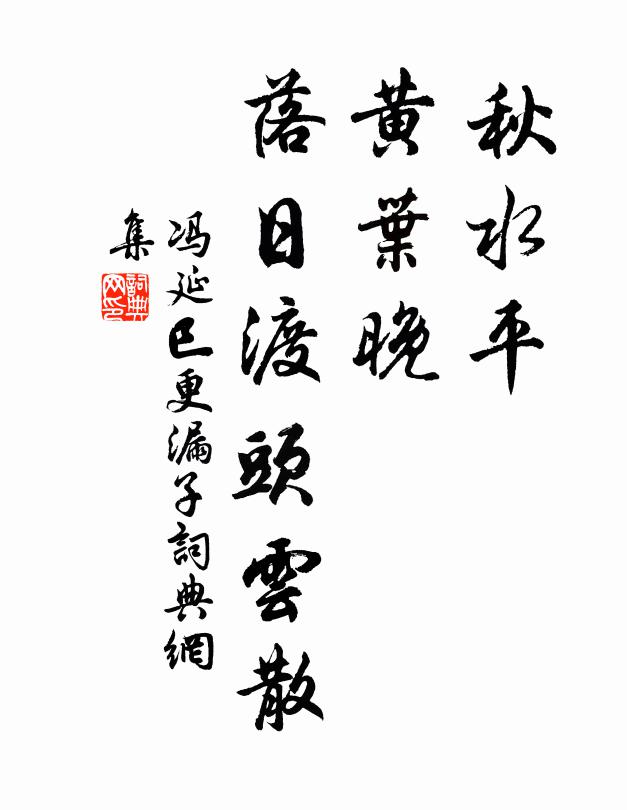 秋水平
黄葉晚
落日渡頭雲散
冯延巳更漏子詞典網
集
詞典
网印